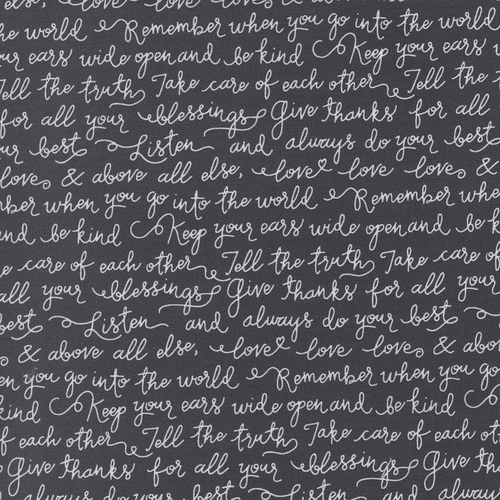 else, love love love &
the world Remember when you go into the world
your ears wide open and be kind Keep your ears w
Tell the truth Take care of each other Tell the t
for all your blessings Give thanks for all
your best Listen and always do your best
love & above all else, love love love &
mber when you go into the world Remember when
and be kind Keep your ears wide open and be k
e care of each other Tell the truth Take care
all your blessings Give thanks for all your
best Listen and always do your best
& above all else, love love love & abov
en you go into the world Remember when you g
kind Keep your ears wide open and be kind
of each other Tell the truth Take care of each ot
Give thanks for all your blessings Give tha
always do your best Listen and alway